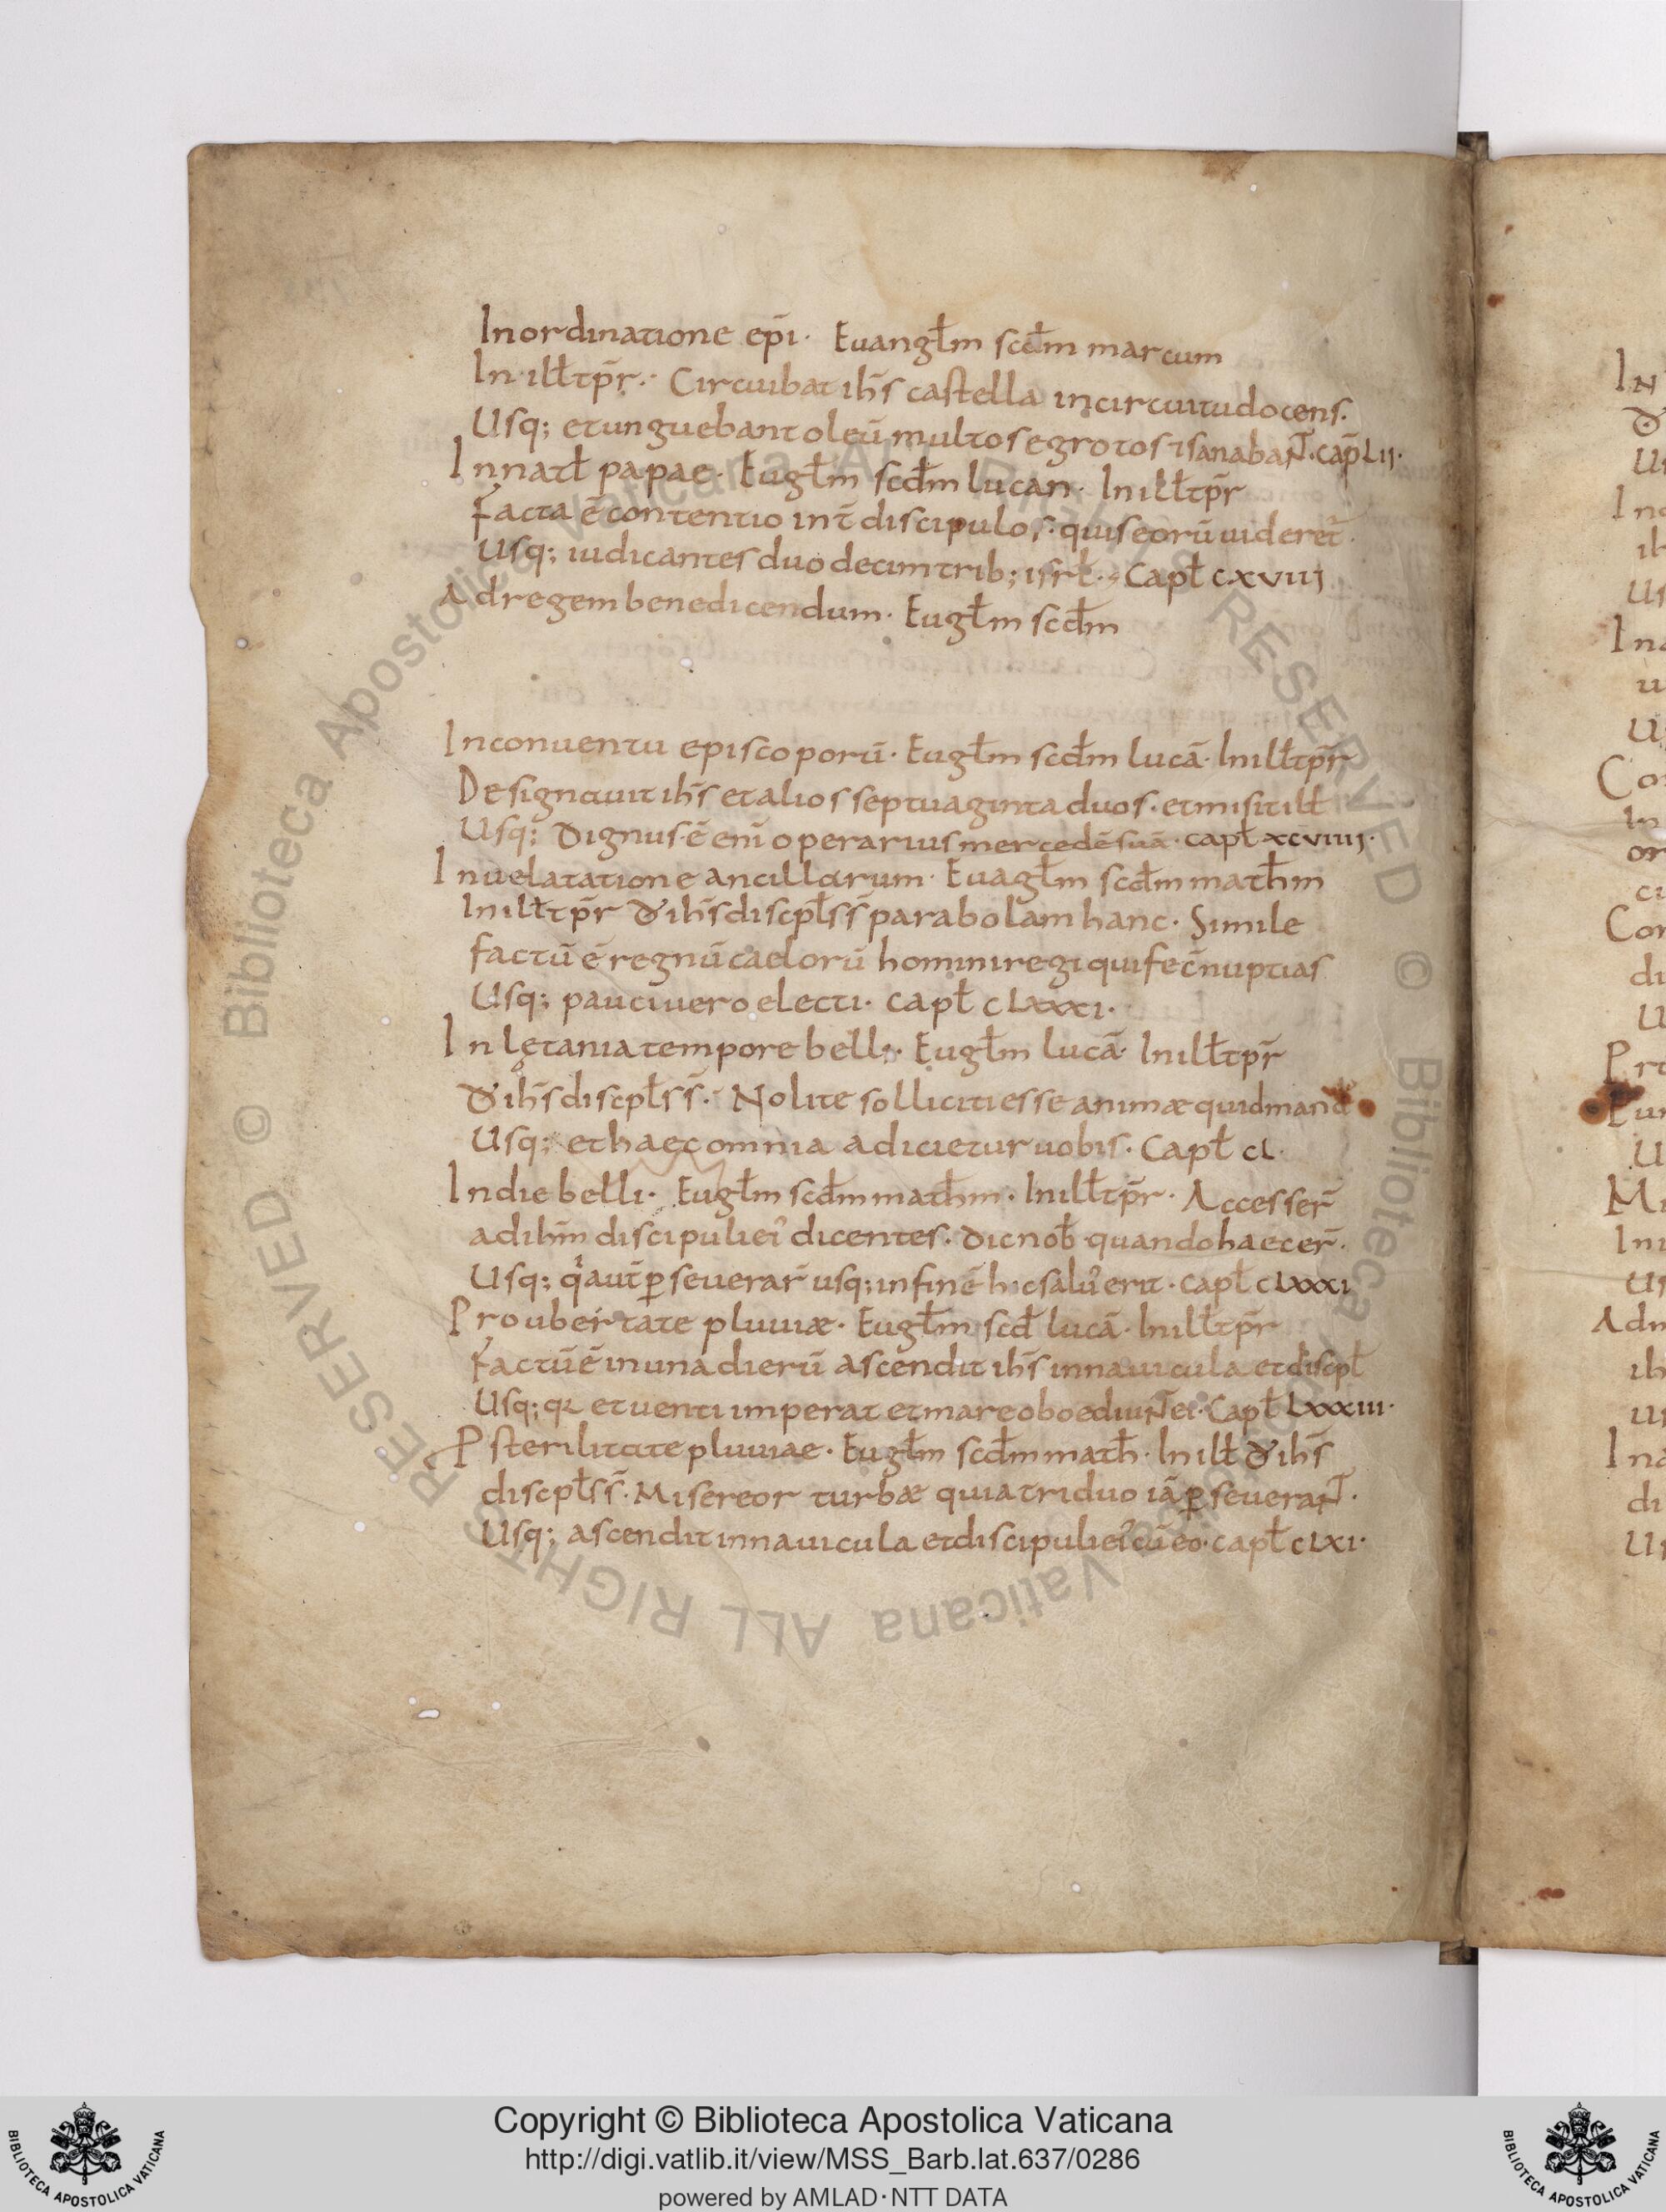 Inordinatione ep̄i· Euangłm scđm marcum
In illt̄pr̄· Circuibat ih̄s castella incircuitu docens·
Usq; et unguebant oleū multos egrotos ⁊ sanabant̄· cap̄ LIJ·
In natł papae· Eugłm scđm lucan· Inillt̄pr̄
Facta ē contentio int̄ discipulos· quis eorū uideret̄·
Usq; iudicantes duodecim trib; isrł· Capł CXVIIJ
Ad regem benedicendum· Eugłm scđm
In conuentu episcoporū· Eugłm scđm lucā· Inillt̄pr̄
Designauit ih̄s et alios septuaginta duos· et misit ill
Usq; Dignus ē enī operarius mercedē suā· capł XCVIIIJ·
In uelatatione ancillarum· Euagłm scđm math̄m
Inillt̄pr̄ D̄ ih̄s discipłs s̄ parabolam hanc· Simile
factū ē regnū caelorū homini regi qui fec̄ nuptias
Usq; pauci uero electi· capł CLXXXI·
In lętania tempore belli· Eugłm lucā· Inillt̄pr̄
D̄ ih̄s discpłs s̄· Nolite solliciti esse animæ quid mand
Usq; et haec omnia adicietur uobis· Capł CL·
In die belli· Eugłm scđm math̄m· Inillt̄pr̄· Accesser̄
ad ih̄m discipuli ei' dicentes· Dic nob̄ quando haec er̄·
Usq; q' aut̄ ꝑseuerar̄ usq; in finē hic salu' erit· capł CLXXXI
Pro ubertate pluuiæ· Eugłm scđ lucā· Inillt̄pr̄
Factū ē in una dierū ascendit ih̄s in nauicula et discpł
Usq; qr et uenti imperat et mare oboediunt̄ ei· Capł LXXXIII·
P sterilitate pluuiae· Eugłm scđm math̄· Inill D̄ ih̄s
discpłs s̄· Misereor turbæ quia triduo iā ꝑseuerant̄·
Usq; ascendit in nauicula et discipuli ei' cū eo· capł CLXI·
Copyright © Biblioteca Apostolica Vaticana
http://digi.vatlib.it/view/MSS_Barb.lat.637/0286
powered by AMLAD·NTT DATA